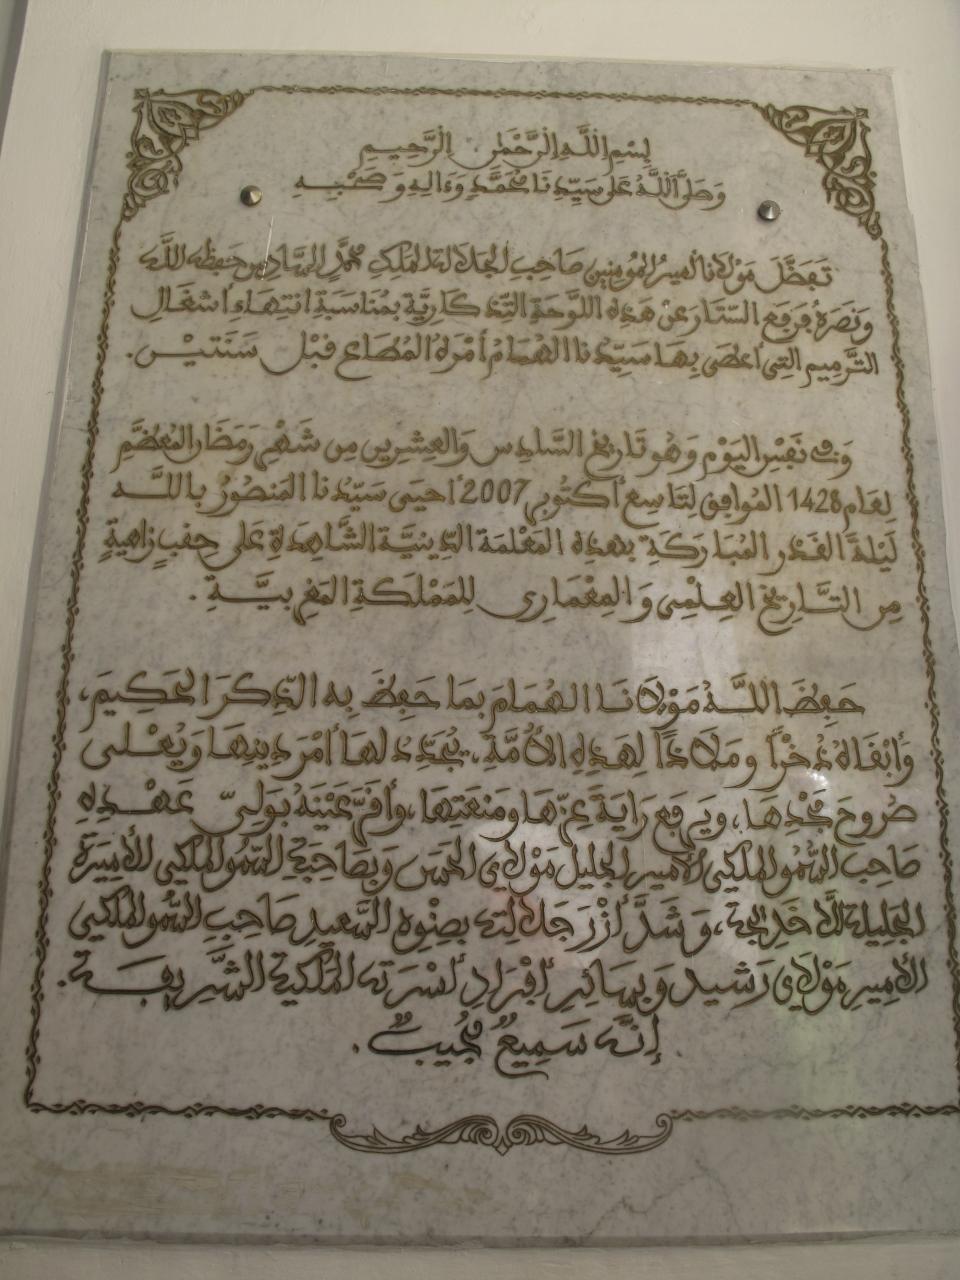 بِسْمِ اللَّهِ الرَّحْمَٰنِ الرَّحِيمِ
وَصَلَّى اللَّهُ عَلَى سَيِّدِنَا مُحَمَّدٍ وَءَالِهِ وَصَحْبِهِ
تَفَضَّلَ مَوْلَانَا أَمِيرُ الْمُومِنِينَ صَاحِبُ الْجَلَالَةِ الْمَلِكُ مُحَمَّدٌ السَّادِسُ حَفِظَهُ اللَّهُ
وَنَصَرَهُ فَرَفَعَ السِّتَارَ عَنْ هَذِهِ اللَّوْحَةِ التِّذْكَارِيَّةِ بِمُنَاسَبَةِ انْتِهَاءِ أَشْغَالِ
التَّرْمِيمِ التِي أَعْطَى بِهَا سَيِّدُنَا الْهُمَامُ أَمْرَهُ الْمُطَاعَ قَبْلَ سَنَتَيْنِ.
وَفِي نَفْسِ الْيَوْمِ وَهُوَ تَارِيخُ السَّادِسِ وَالعِشْرِينَ مِن شَهْرِ رَمَضَانَ الْمُعَظَّمِ
لِعَامِ 1428 الْمُوَافِقِ لِتَاسِعِ أُكْتُوبَر 2007 أَحْيَى سَيِّدُنَا الْمَنصُورُ بِاللَّهِ
لَيْلَةَ الْقَدْرِ الْمُبَارَكَةِ بِهَذِهِ الْمَعْلَمَةِ الدِّينِيَّةِ الشَّاهِدَةِ عَلَى حِقَبٍ زَاهِيَةٍ
مِنَ التَّارِيخِ الْعِلْمِي وَالْمِعْمَارِي لِلْمَمْلَكَةِ الْمَغْرِبِيَّةِ.
حَفِظَ اللَّهُ مَوْلَانَا الْهُمَامَ بِمَا حَفِظَ بِهِ الذِّكْرَ الْحَكِيمَ،
وَأَبْقَاهُ ذُخْراً وَمَلَاذاً لِهَذِهِ الْأُمَّةِ، يُجَدِّدُ لَهَا أَمْرَ دِينِهَا وَيُعْلِي
صُرُوحَ مَجْدِهَا، وَيَرْفَعُ رَايَةَ عِزِّهَا وَمَنَعَتِهَا، وَأَقَرَّ عَيْنَهُ بِوَلِيِّ عَهْدِهِ
صَاحِبِ السُّمُوِّ الْمَلَكِي الْأَمِيرِ الْجَلِيلِ مَوْلَايَ الْحَسَنِ وَبِصَاحِبَةِ السُّمُوِّ الْمَلَكِي الْأَمِيرَةِ
الْجَلِيلَةِ لَلَّا خَدِيجَةَ، وَشَدَّ أَزْرَ جَلَالَتِهِ بِصِنْوِهِ السَّعِيدِ صَاحِبِ السُّمُوِّ الْمَلَكِي
الْأَمِيرِ مَوْلَايَ رَشِيدٍ وَبِسَائِرِ أَفْرَادِ أُسْرَتِهِ الْمَلَكِيَّةِ الشَّرِيفَةِ.
إِنَّهُ سَمِيعٌ مُجِيبٌ.